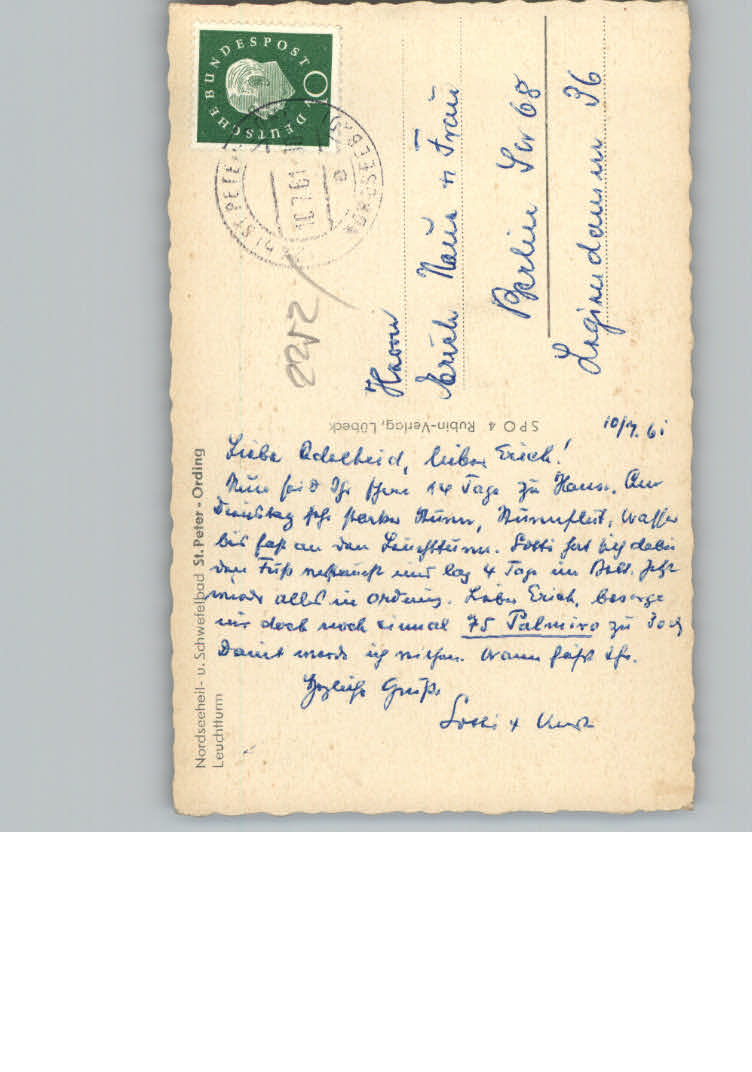 Nordseeheil- u. Schwefelbad St. Peter-Ording
Leuchtturm
DEUTSCHE BUNDESPOST
10
10.7.61
a
2252
SPO 4 Rubin-Verlag, Lübeck
Herrn
Erich u Frau
Berlin SW 68
36
10/7. 61
Liebe Adelheid, lieber Erich!
Nun seid Ihr schon 14 Tage zu Hause. Am
Dienstag sehr starker Sturm, Sturmflut, Wasser
bis fast an den Leuchtturm. Lotti hat sich dabei
den Fuß verstaucht und lag 4 Tage im Bett. Jetzt
wieder alles in Ordnung. Lieber Erich, besorge
mir doch noch einmal 75 Palmiro zu
Damit werde ich reichen. Wann fahrt Ihr.
Herzliche Grüße
Lotti + Kurt